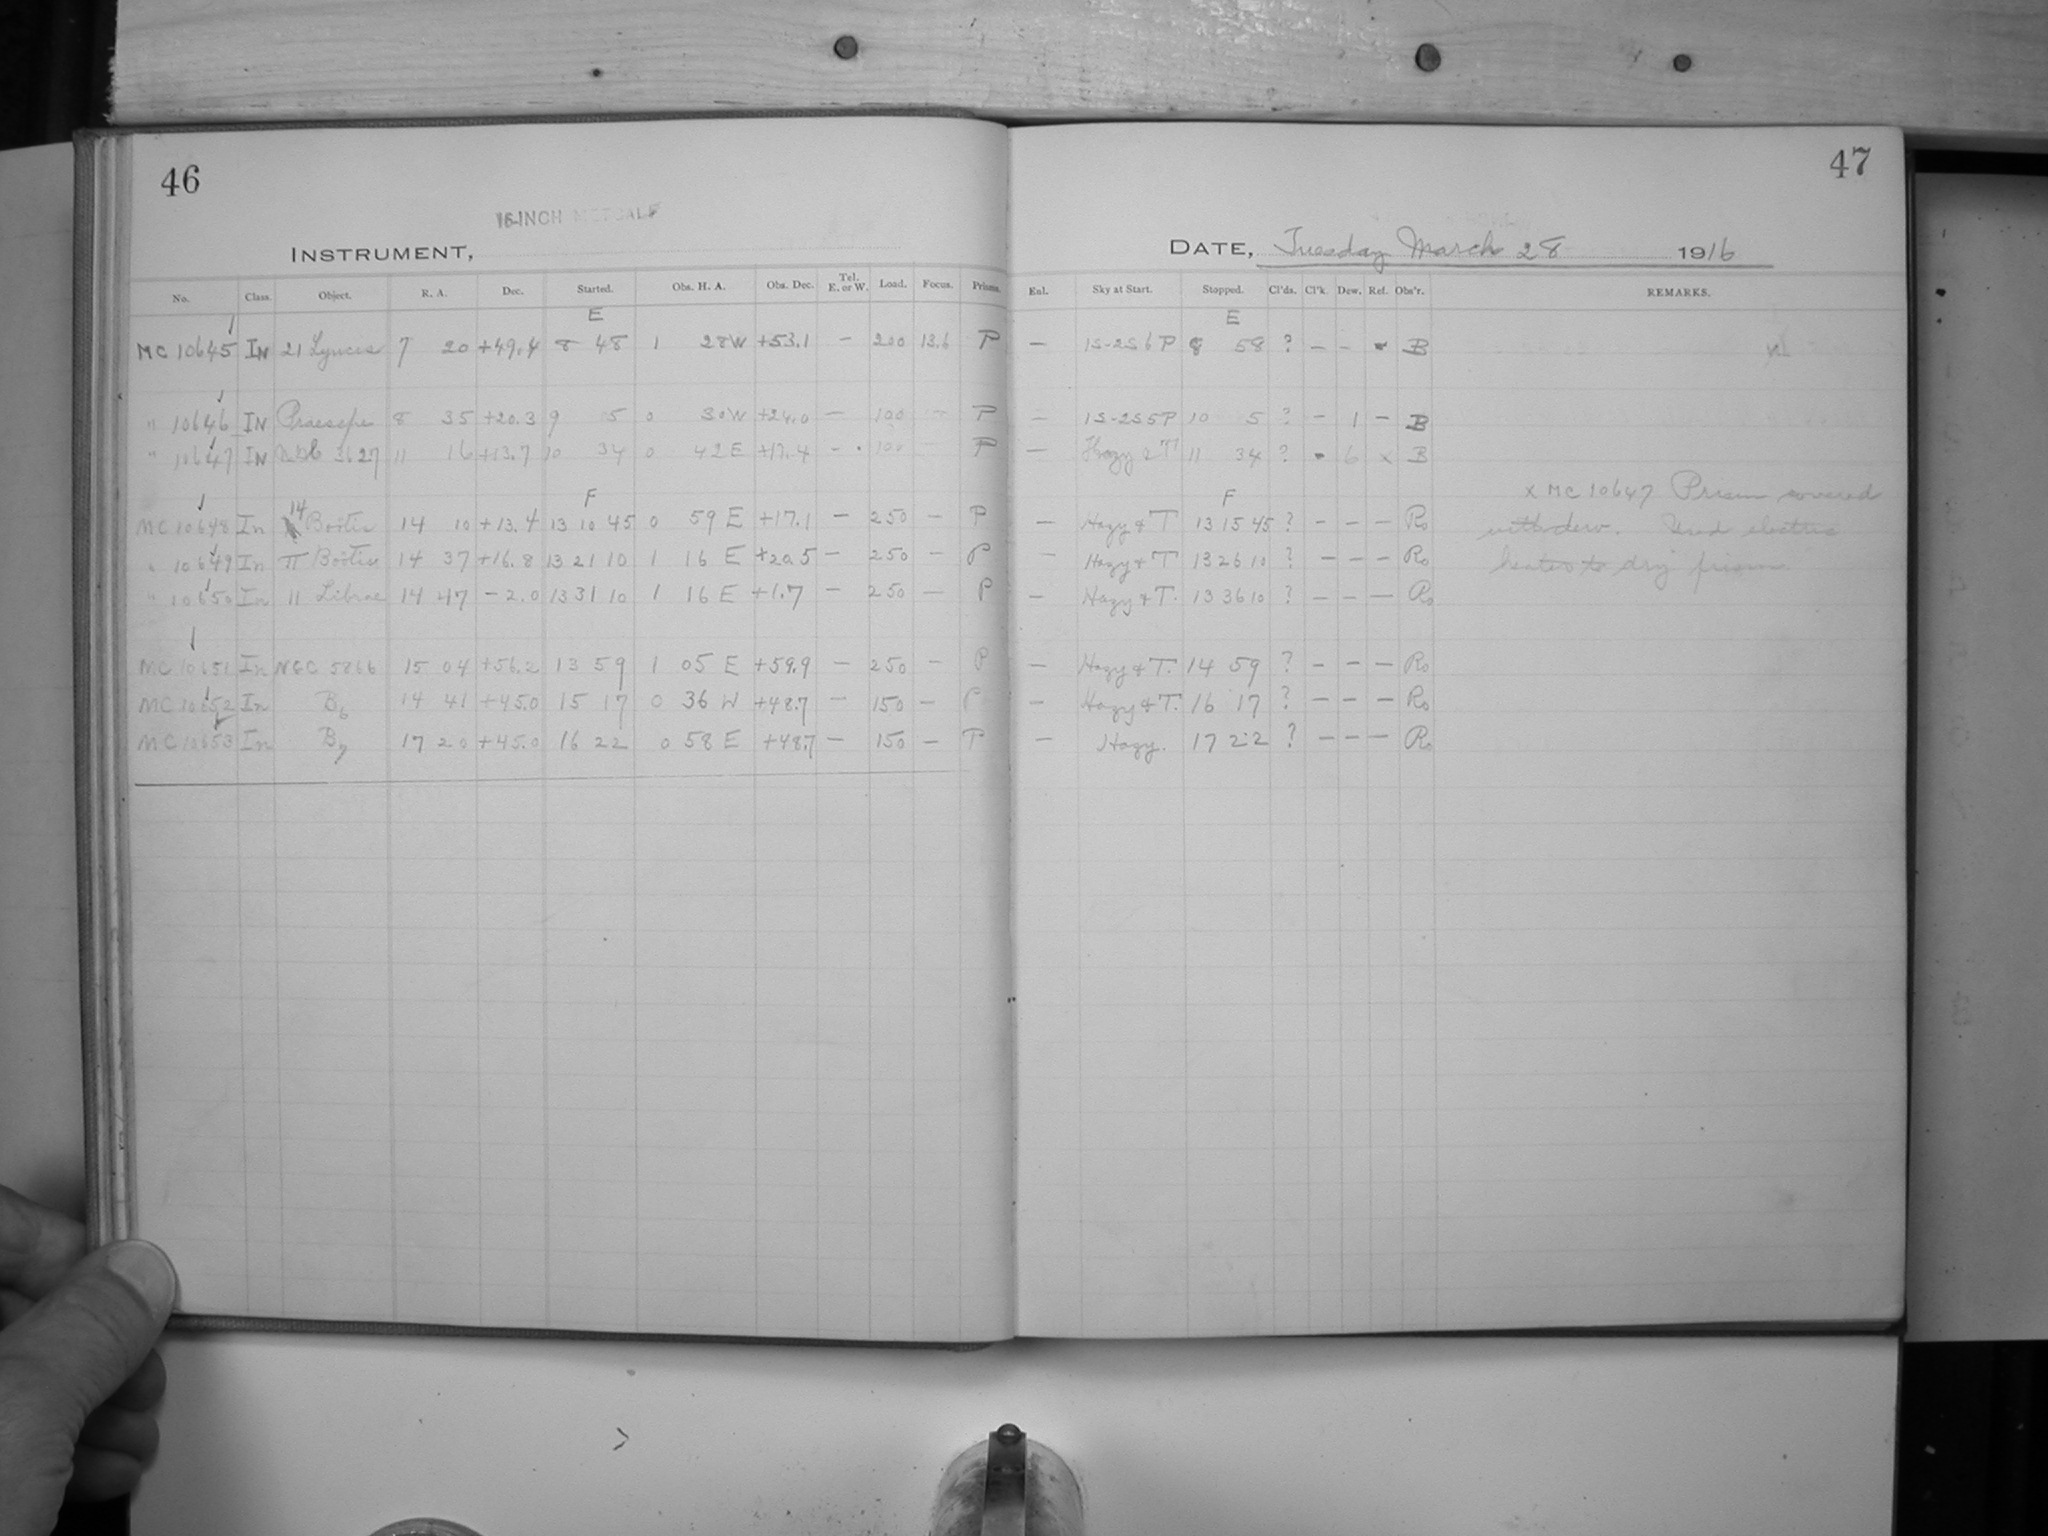 46
16-INCH METCALF
INSTRUMENT,
No. Class. Object. R. A. Dec. Started. Obs. H. A. Obs. Dec. Tel. E. or W. Load. Focus. Prisms.
E
MC 10645 IN 21 Lyncis 7 20 +49.4 8 48 1 28W +53.1 - 200 13.6 P
" 10646 IN Praesepe 8 35 +20.3 9 5 0 30W +24.0 - 100 - P
" 10647 IN 3627 11 16 +13.7 10 34 0 42E +17.4 - 100 P
F
MC 10648 In 14 Bootis 14 10 +13.4 13 10 45 0 59 E +17.1 - 250 - P
" 10649 In π Bootis 14 37 +16.8 13 21 10 1 16 E +20.5 - 250 - P
" 10650 In 11 Librae 14 47 -2.0 13 31 10 1 16 E +1.7 - 250 - P
MC 10651 In NGC 5866 15 04 +56.2 13 59 1 05 E +59.9 - 250 - P
MC 10652 In B6 14 41 +45.0 15 17 0 36 W +48.7 - 150 - P
MC 10653 In B7 17 20 +45.0 16 22 0 58 E +48.7 - 150 - P
47
DATE, Tuesday March 28 1916
Enl. Sky at Start. Stopped. Cl'ds. Cl'k. Dew. Ref. Obs'r. REMARKS.
E
- 1S-2S6P 8 58 ? - - - B
- 1S-2S5P 10 5 ? - 1 - B
- Hazy & T 11 34 ? - 6 x B
F
- Hazy & T 13 15 45 ? - - - Ro
- Hazy & T 13 26 10 ? - - - Ro
- Hazy & T. 13 36 10 ? - - - Ro
- Hazy & T. 14 59 ? - - - Ro
- Hazy & T. 16 17 ? - - - Ro
- Hazy. 17 22 ? - - - Ro
x MC 10647 Prism covered
with dew. Used electric
heater to dry prism